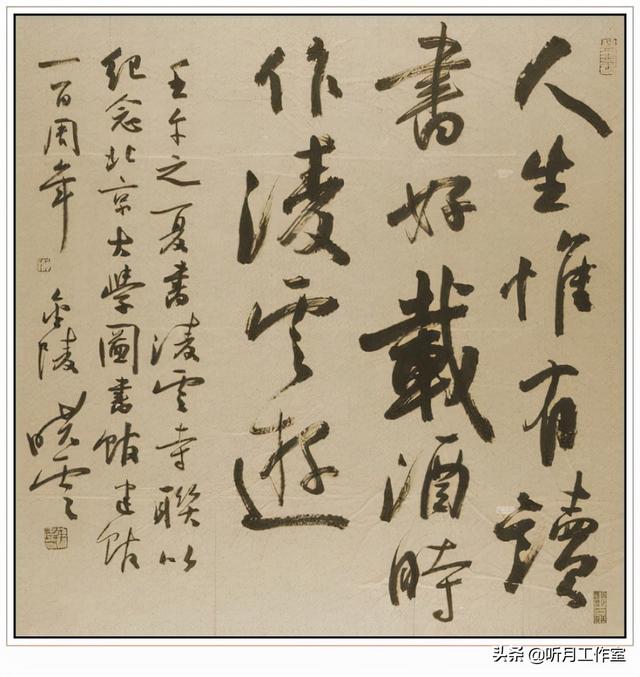 人生惟有讀
書好載酒時
作淩雲遊
壬午之夏書淩雲寺聯以
紀念北京大學圖書館建館
一百周年 金陵 曉雲
头条 @听月工作室